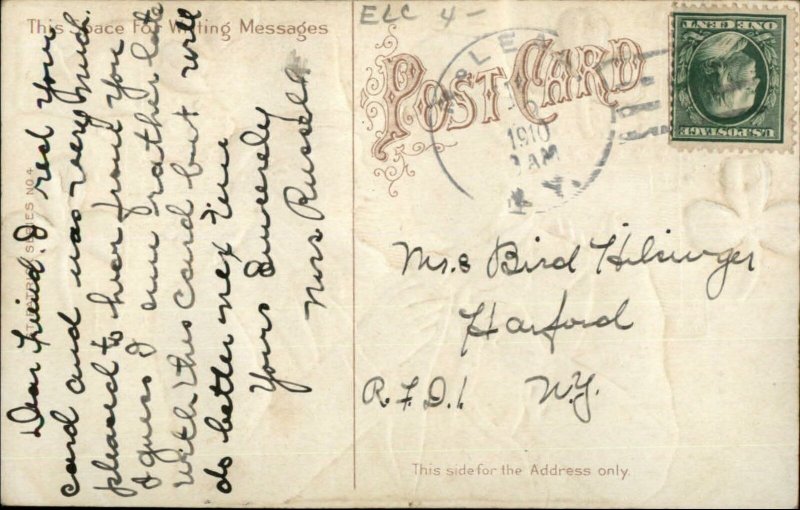 This Space For Writing Messages
ELC 4-
POST CARD
1910
AM
N.Y.
ONE CENT
U.S. POSTAGE
SERIES NO. 4
Dear Friend. I recd your
card and was very much
pleased to hear from you
I guess I am rather late
with this card but will
do better nex time
Yours Sincerely
Mrs Russell
Mrs Bird Hilsinger
Harford
R.F.D.1. N.Y.
This side for the Address only.